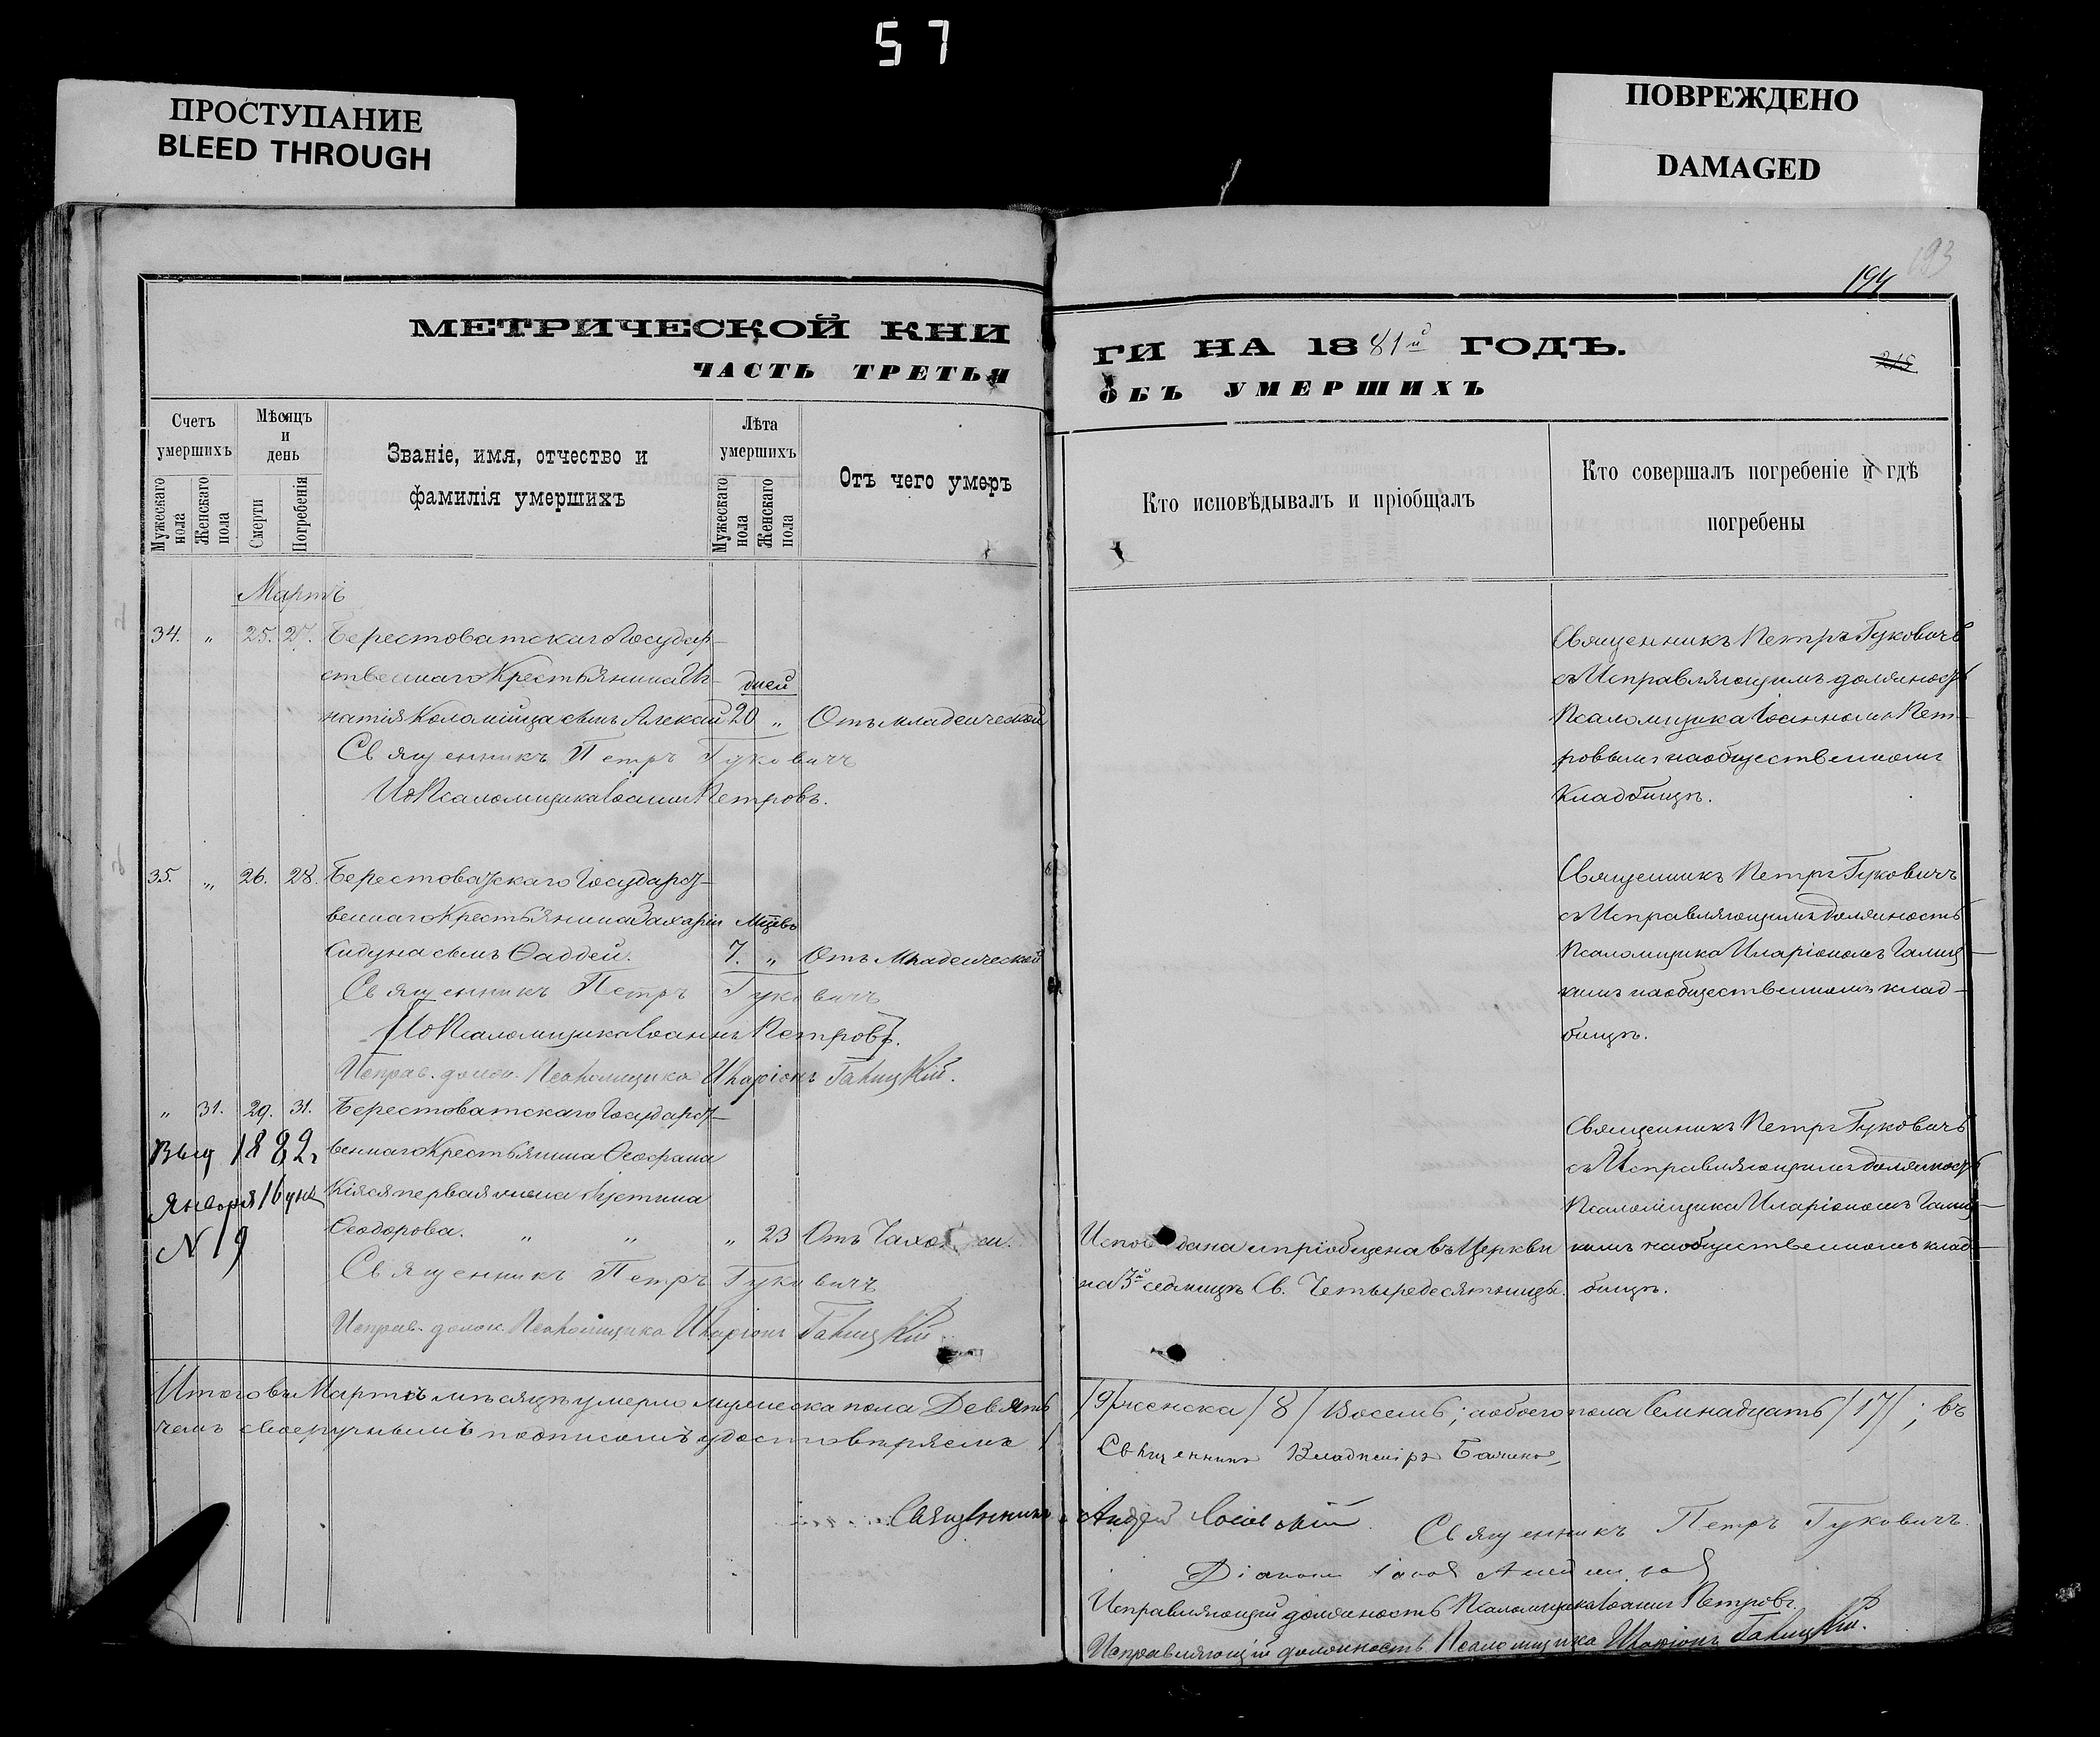 57
ПРОСТУПАНИЕ
BLEED THROUGH
ПОВРЕЖДЕНО
DAMAGED
193
194
215
МЕТРИЧЕСКОЙ КНИ
ЧАСТЬ ТРЕТЬЯ
Счетъ умершихъ
Мужескаго пола
Женскаго пола
Мѣсяцъ и день
Смерти
Погребенія
Званіе, имя, отчество и
фамилія умершихъ
Лѣта умершихъ
Мужескаго пола
Женскаго пола
Отъ чего умеръ
Мартъ
34. „ 25. 27. Берестоватскаго Государ-
ственнаго Крестьянина Иг- дней
натія Коломійца сынъ Алексій 20 „ Отъ младенческой
Священникъ Петръ Гуковичъ
И о Псаломщика Іоаннъ Петровъ.
35. „ 26. 28. Берестоватскаго Государст-
веннаго Крестьянина Захарія Мцевъ
сынъ Фаддей. 7. „ Отъ Младенческой
Священникъ Петръ Гуковичъ
И о Псаломщика Іоаннъ Петровъ.
Исправ. долж. Псаломщика Иларіонъ Галицкій.
„ 31. 29. 31. Берестоватскаго Государст-
Выд 1882 г веннаго Крестьянина
Января 16 дня первая жена Іустина
N 19 Ѳеодорова. „ „ „ 23 Отъ
Священникъ Петръ Гуковичъ
Исправ. долж. Псаломщика Иларіонъ Галицкій.
Итого въ Мартѣ мѣсяцѣ умерло мужеска пола Девять
чемъ своеручнымъ подписомъ удостовѣряемъ
Священникъ
ГИ НА 1881й ГОДЪ.
ОБЪ УМЕРШИХЪ
Кто исповѣдывалъ и пріобщалъ
Кто совершалъ погребеніе и гдѣ
погребены
Священникъ Петръ Гуковичъ
съ Исправляющимъ должность
Псаломщика Іоанномъ Пет-
ровымъ на общественномъ
Кладбищѣ.
Священникъ Петръ Гуковичъ
съ Исправляющимъ должность
Псаломщика Иларіономъ Галиц-
кимъ на общественномъ клад-
бищѣ.
Священникъ Петръ Гуковичъ
съ Исправляющимъ должность
Псаломщика Иларіономъ Галиц-
Исповѣдана и пріобщена въ Церкви кимъ на общественномъ клад-
на 3й седмицѣ Св. Четыредесятницы. бищѣ.
/9/ женска /8/ Восемь; а обоего пола Семнадцать /17/; въ
Священникъ Владиміръ
Андрей
Священникъ Петръ Гуковичъ.
Діаконъ
Исправляющій должность Псаломщика Іоаннъ Петровъ.
Исправляющій должность Псаломщика Иларіонъ Галицкій.